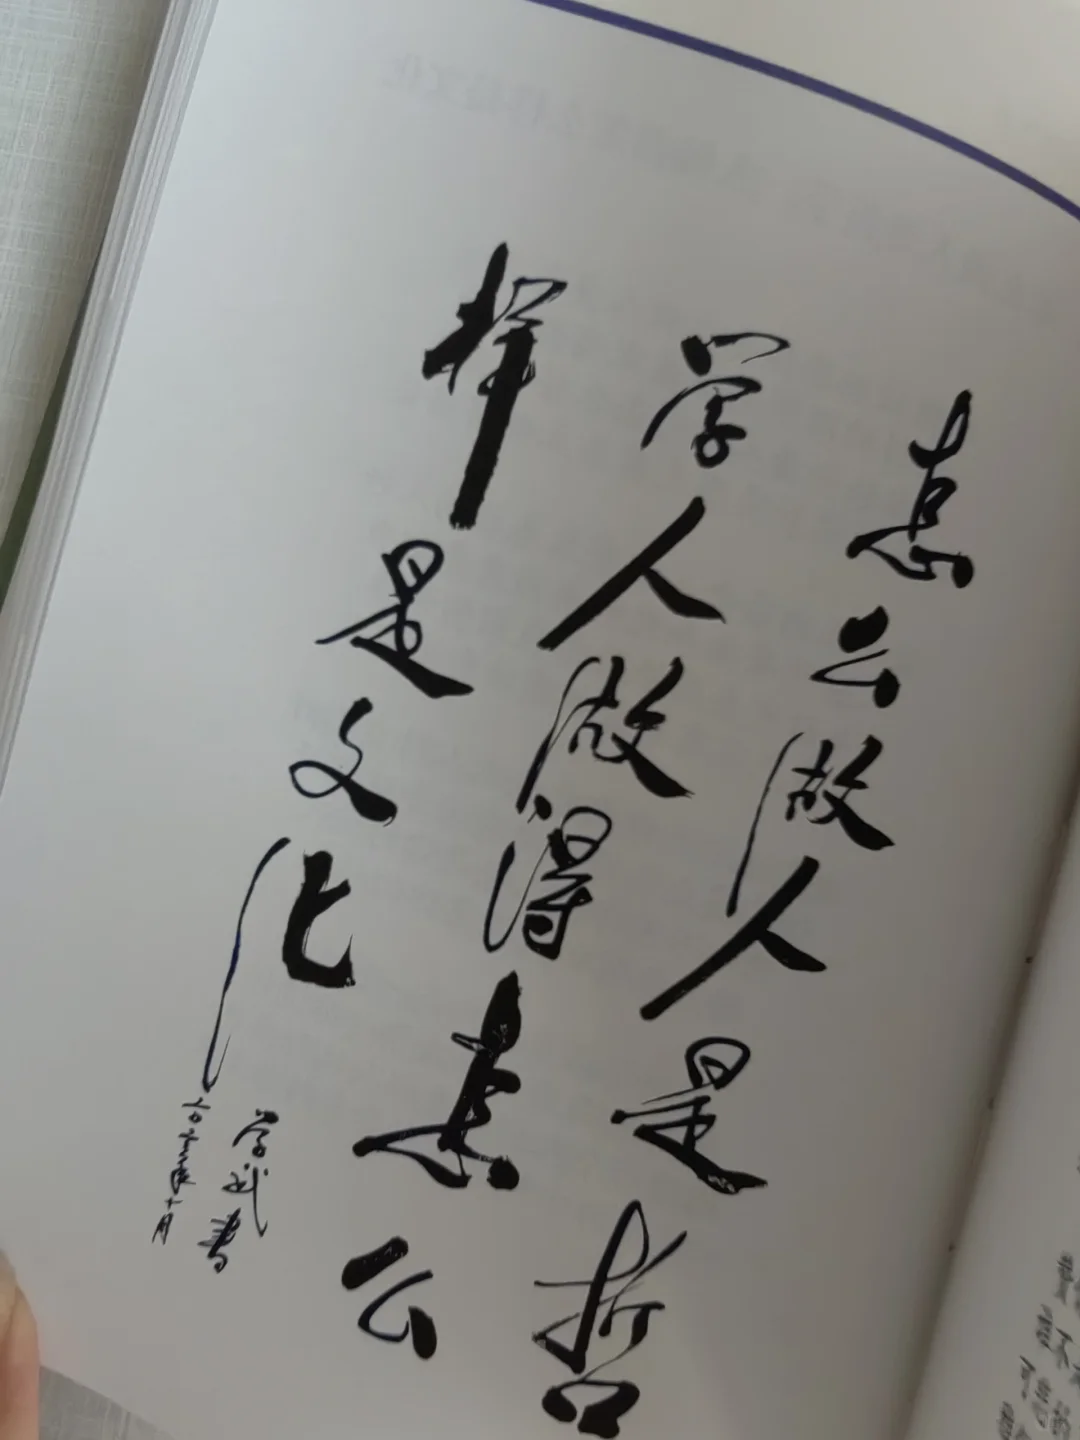 怎么做人是哲
学人做得怎么
样是文化